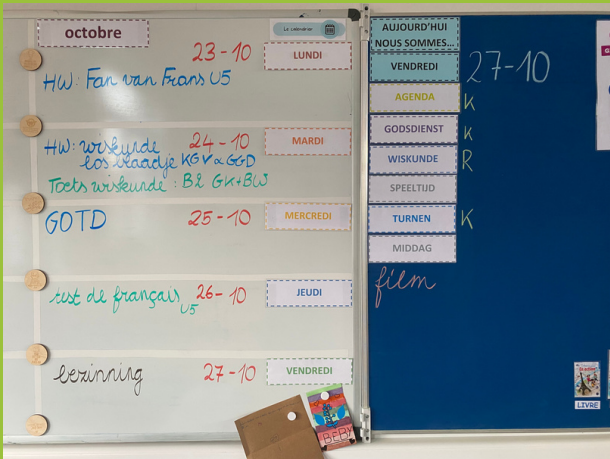 octobre
Le calendrier
23-10
LUNDI
HW: Fan van Frans U5
HW: wiskunde 24-10
MARDI
los blaadje KGV ∝ GGD
Toets wiskunde: B2 GK+BW
GOTD 25-10
MERCREDI
test de français U5 26-10
JEUDI
bezinning 27-10
VENDREDI
AUJOURD'HUI
NOUS SOMMES...
VENDREDI 27-10
AGENDA K
GODSDIENST K
WISKUNDE R
SPEELTIJD
TURNEN K
MIDDAG
film
LIVRE